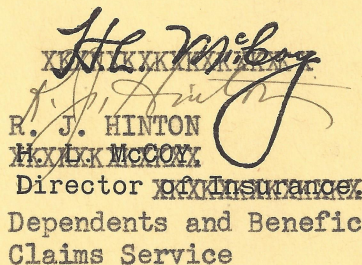 H.L. McCoy
R. J. Hinton
R. J. HINTON
H. L. McCOY.
Director of Insurance.
Dependents and Benefic
Claims Service